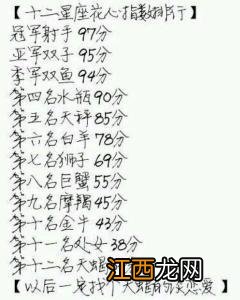 【十二星座花心指数排行】
冠军射手 97分
亚军双子 95分
季军双鱼 94分
第四名水瓶 90分
第五名天秤 85分
第六名白羊 78分
第七名狮子 69分
第八名巨蟹 55分
第九名摩羯 45分
第十名金牛 43分
第十一名处女 38分
第十二名天蝎
【以后一定找个天蝎的谈恋爱】
江西龙网